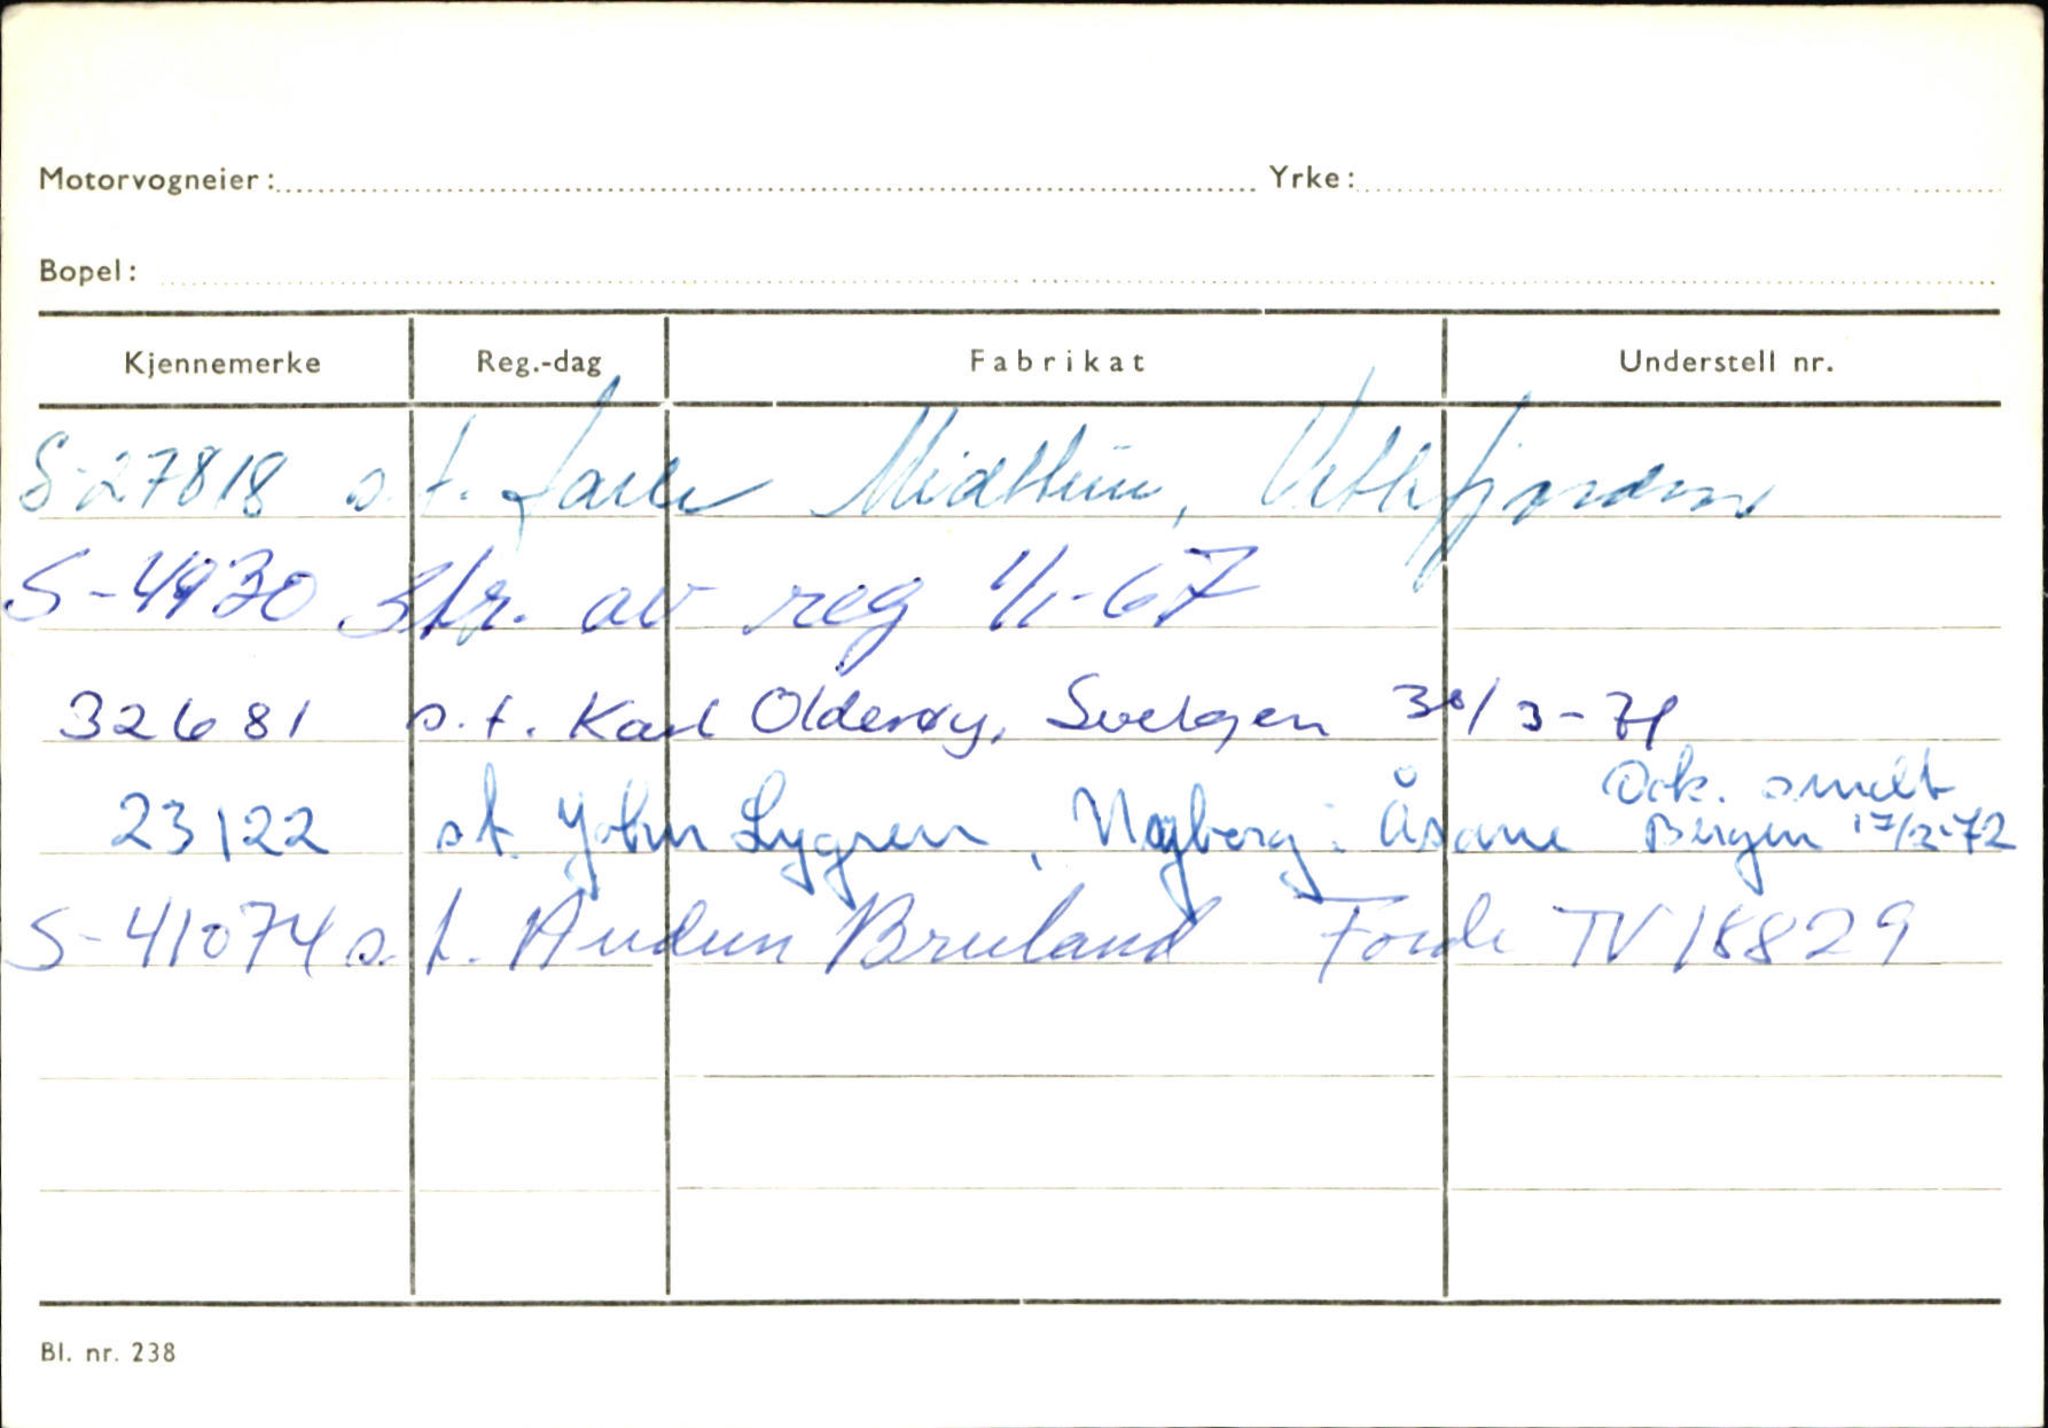 Motorvogneier: Yrke:
Bopel:
Kjennemerke Reg.-dag Fabrikat Understell nr.
S-27818 s.t. Jarle Midthun, Vetlefjorden
S-4930 Str. av reg 1/1-67
32681 s.t. Karl Olderøy, Svelgen 30/3-71
Dek. smelt
23122 s.t. John Lygren, Nyborg i Åsane Bergen 17/2-72
S-41074 s.t. Audun Bruland Førde TV 18829
Bl. nr. 238